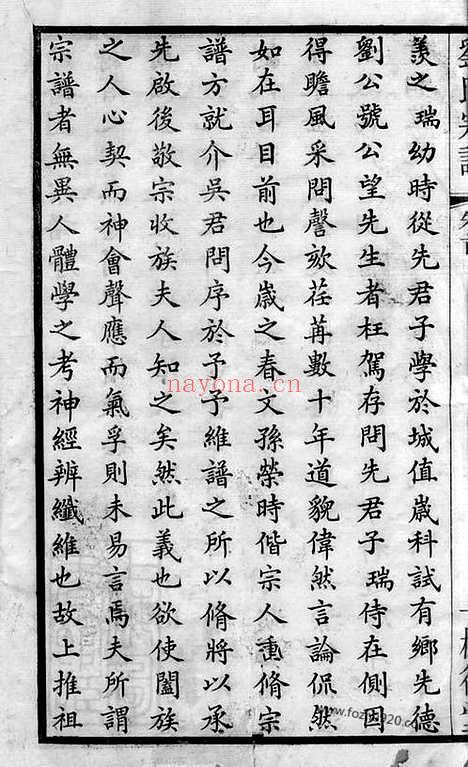 羨之瑞幼時從先君子學於城值嵗科試有鄉先德
劉公號公望先生者枉駕存問先君子瑞侍在側因
得瞻風采問謦欬荏苒數十年道貌偉然言論侃然
如在耳目前也今嵗之春文孫榮時偕宗人重脩宗
譜方就介吳君問序於予予維譜之所以脩將以承
先啟後敬宗收族夫人知之矣然此義也欲使闔族
之人心契而神會聲應而氣孚則未易言焉夫所謂
宗譜者無異人體學之考神經辨纖維也故上推祖
nayona.cn